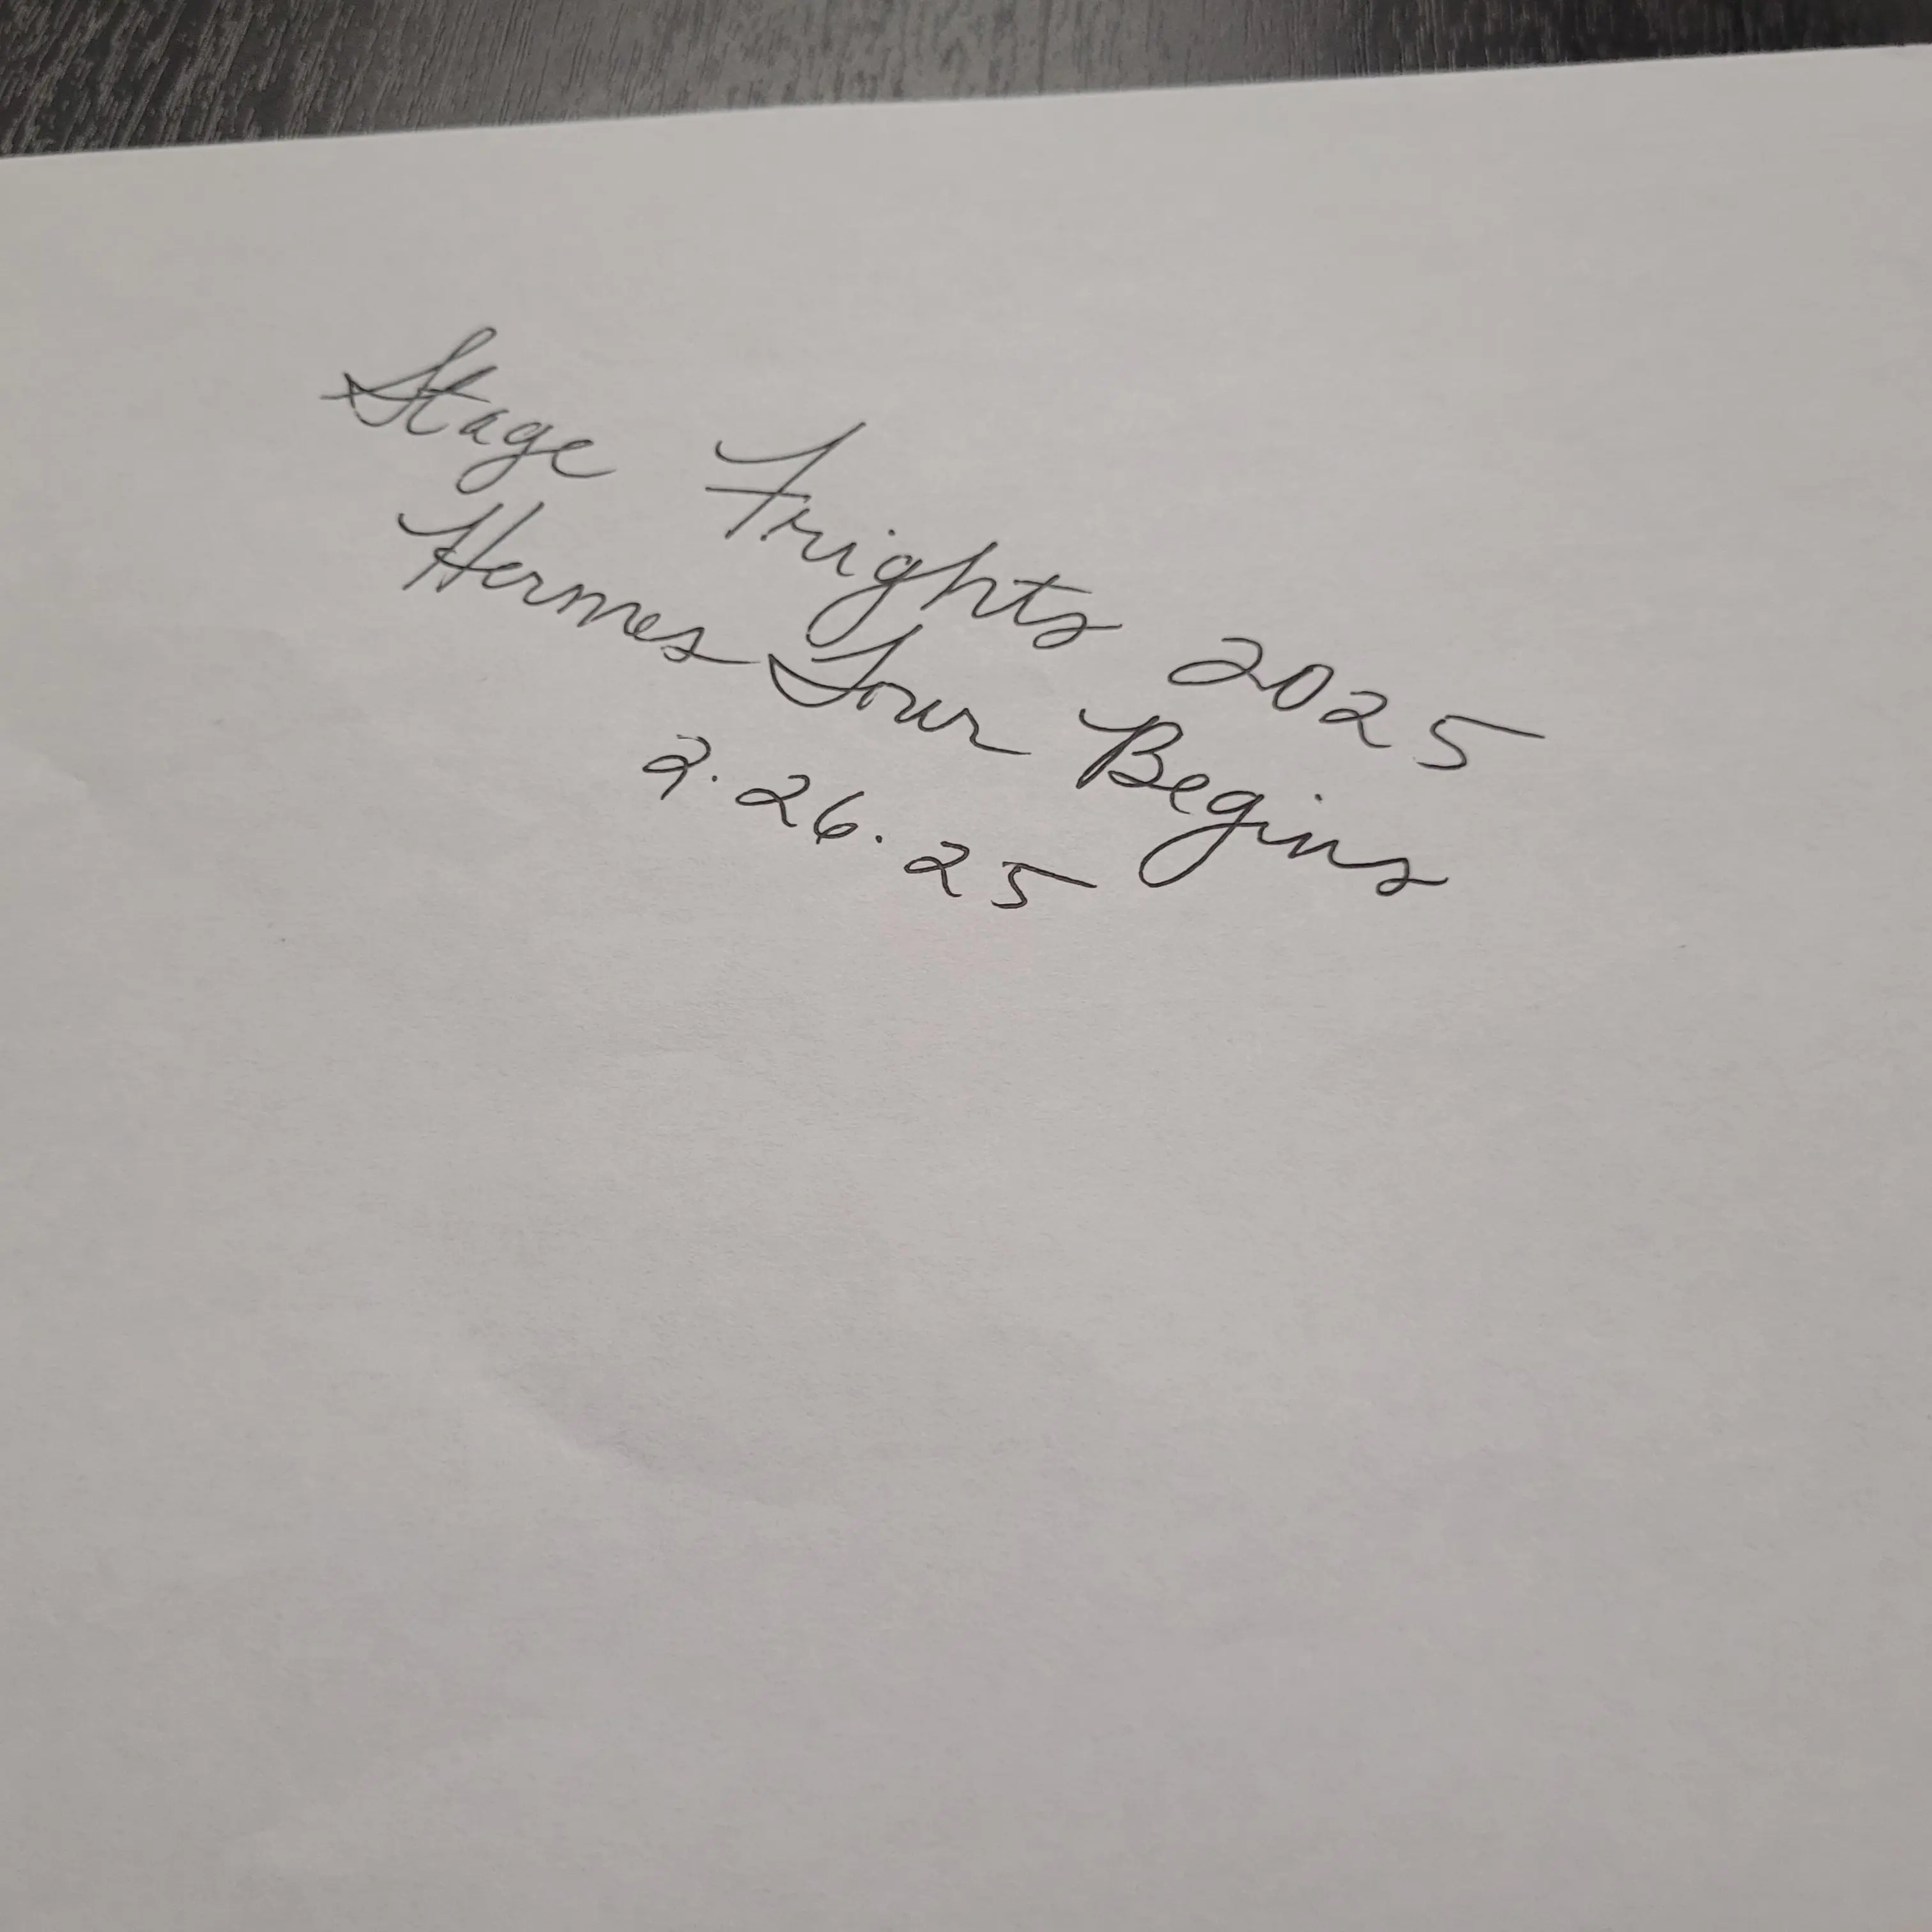 Stage Frights 2025
Hermes Tour Begins
2.26.25